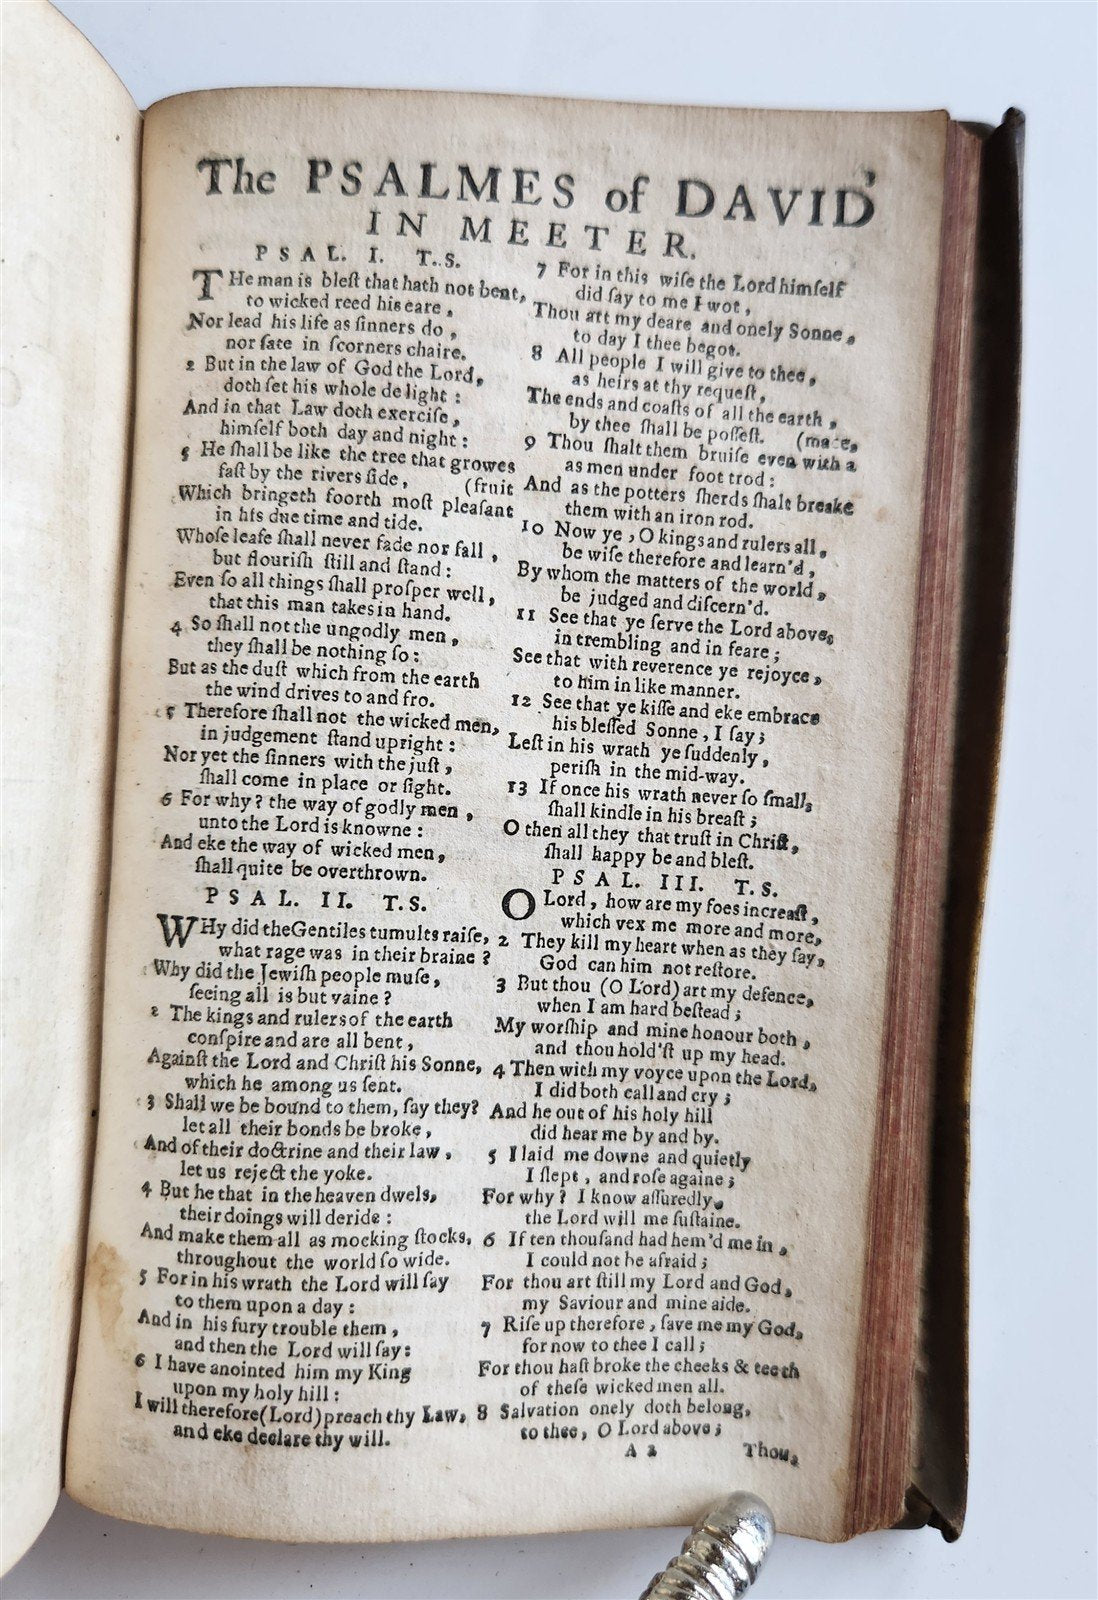 The PSALMES of DAVID
IN MEETER.
PSAL. I. T.S.
THe man is bleſt that hath not bent,
to wicked reed his eare,
Nor lead his life as ſinners do,
nor ſate in ſcorners chaire.
2 But in the law of God the Lord,
doth ſet his whole delight:
And in that Law doth exerciſe,
himſelf both day and night:
3 He ſhall be like the tree that growes
faſt by the rivers ſide, (fruit
Which bringeth foorth moſt pleaſant
in his due time and tide.
Whoſe leafe ſhall never fade nor fall,
but flouriſh ſtill and ſtand:
Even ſo all things ſhall proſper well,
that this man takes in hand.
4 So ſhall not the ungodly men,
they ſhall be nothing ſo:
But as the duſt which from the earth
the wind drives to and fro.
5 Therefore ſhall not the wicked men,
in judgement ſtand upright:
Nor yet the ſinners with the juſt,
ſhall come in place or ſight.
6 For why? the way of godly men,
unto the Lord is knowne:
And eke the way of wicked men,
ſhall quite be overthrown.
PSAL. II. T.S.
WHy did the Gentiles tumults raiſe,
what rage was in their braine?
Why did the Jewiſh people muſe,
ſeeing all is but vaine?
2 The kings and rulers of the earth
conſpire and are all bent,
Againſt the Lord and Chriſt his Sonne,
which he among us ſent.
3 Shall we be bound to them, ſay they?
let all their bonds be broke,
And of their doctrine and their law,
let us reject the yoke.
4 But he that in the heaven dwels,
their doings will deride:
And make them all as mocking ſtocks,
throughout the world ſo wide.
5 For in his wrath the Lord will ſay
to them upon a day:
And in his fury trouble them,
and then the Lord will ſay:
6 I have anointed him my King
upon my holy hill:
I will therefore (Lord) preach thy Law,
and eke declare thy will.
7 For in this wiſe the Lord himſelf
did ſay to me I wot,
Thou art my deare and onely Sonne,
to day I thee begot.
8 All people I will give to thee,
as heirs at thy requeſt,
The ends and coaſts of all the earth,
by thee ſhall be poſſeſt. (mace,
9 Thou ſhalt them bruiſe even with a
as men under foot trod:
And as the potters ſherds ſhalt breake
them with an iron rod.
10 Now ye, O kings and rulers all,
be wiſe therefore and learn'd,
By whom the matters of the world,
be judged and diſcern'd.
11 See that ye ſerve the Lord above,
in trembling and in feare;
See that with reverence ye rejoyce,
to him in like manner.
12 See that ye kiſſe and eke embrace
his bleſſed Sonne, I ſay;
Leſt in his wrath ye ſuddenly,
periſh in the mid-way.
13 If once his wrath never ſo ſmall,
ſhall kindle in his breaſt;
O then all they that truſt in Chriſt,
ſhall happy be and bleſt.
PSAL. III. T.S.
O Lord, how are my foes increaſt,
which vex me more and more,
2 They kill my heart when as they ſay,
God can him not reſtore.
3 But thou (O Lord) art my defence,
when I am hard beſtead;
My worſhip and mine honour both,
and thou hold'ſt up my head.
4 Then with my voyce upon the Lord,
I did both call and cry;
And he out of his holy hill
did hear me by and by.
5 I laid me downe and quietly
I ſlept, and roſe againe;
For why? I know aſſuredly,
the Lord will me ſuſtaine.
6 If ten thouſand had hem'd me in,
I could not be afraid;
For thou art ſtill my Lord and God,
my Saviour and mine aide.
7 Riſe up therefore, ſave me my God,
for now to thee I call;
For thou haſt broke the cheeks & teeth
of theſe wicked men all.
8 Salvation onely doth belong,
to thee, O Lord above;
A 2 Thou,